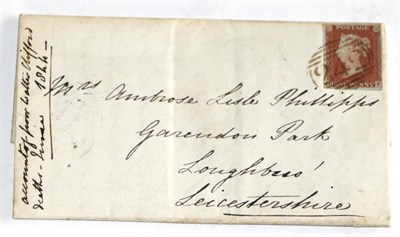 account of poor Walter Clifford
death. June 1844 —
Mrs Ambrose Lisle Phillipps
Garendon Park
Loughbro'
Leicestershire
POSTAGE